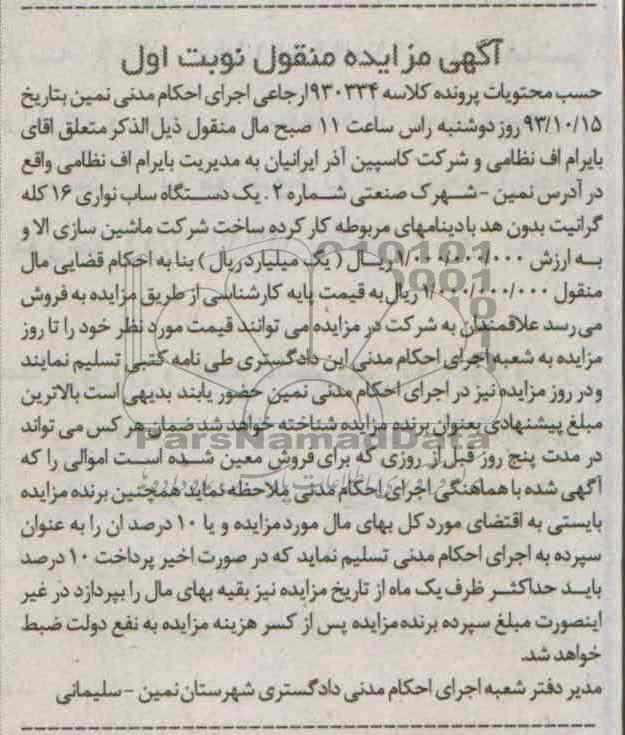 آگهی مزایده منقول نوبت اول
حسب محتویات پرونده کلاسه ۹۳۰۳۳۴ارجاعی اجرای احکام مدنی نمین بتاریخ
۹۳/۱۰/۱۵ روز دوشنبه راس ساعت ۱۱ صبح مال منقول ذیل الذکر متعلق اقای
بایرام اف نظامی و شرکت کاسپین آذر ایرانیان به مدیریت بایرام اف نظامی واقع
در آدرس نمین -شهرک صنعتی شماره ۲ . یک دستگاه ساب نواری ۱۶ کله
گرانیت بدون هد با دینامهای مربوطه کار کرده ساخت شرکت ماشین سازی الا و
به ارزش ۱/۰۰۰/۰۰۰/۰۰۰ریال ( یک میلیارد ریال ) بنا به احکام قضایی مال
منقول ۱/۰۰۰/۰۰۰/۰۰۰ ریال به قیمت پایه کارشناسی از طریق مزایده به فروش
می رسد علاقمندان به شرکت در مزایده می توانند قیمت مورد نظر خود را تا روز
مزایده به شعبه اجرای احکام مدنی این دادگستری طی نامه کتبی تسلیم نمایند
و در روز مزایده نیز در اجرای احکام مدنی نمین حضور یابند بدیهی است بالاترین
مبلغ پیشنهادی بعنوان برنده مزایده شناخته خواهد شد ضمان هر کس می تواند
ParsNamadData
در مدت پنج روز قبل از روزی که برای فروش معین شده است اموالی را که
آگهی شده با هماهنگی اجرای احکام مدنی ملاحظه نماید همچنین برنده مزایده
بایستی به اقتضای مورد کل بهای مال مورد مزایده و یا ۱۰ درصد ان را به عنوان
سپرده به اجرای احکام مدنی تسلیم نماید که در صورت اخیر پرداخت ۱۰ درصد
باید حداکثر ظرف یک ماه از تاریخ مزایده نیز بقیه بهای مال را بپردازد در غیر
اینصورت مبلغ سپرده برنده مزایده پس از کسر هزینه مزایده به نفع دولت ضبط
خواهد شد.
مدیر دفتر شعبه اجرای احکام مدنی دادگستری شهرستان نمین - سلیمانی